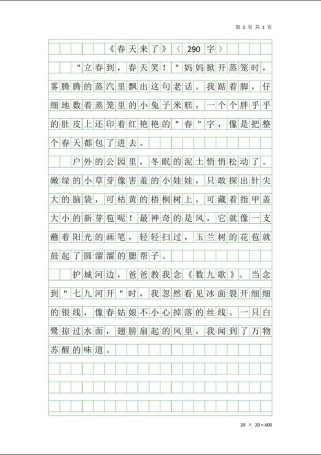 第 1 页 共 1 页
《春天来了》（290 字）
"立春到，春天笑！"妈妈掀开蒸笼时，
雾腾腾的蒸汽里飘出这句老话。我踮着脚，仔
细地数着蒸笼里的小兔子米糕，一个个胖乎乎
的肚皮上还印着红艳艳的"春"字，像是把整
个春天都包了进去。
户外的公园里，冬眠的泥土悄悄松动了。
嫩绿的小草芽像害羞的小娃娃，只敢探出针尖
大的脑袋，可枯黄的梧桐树上，可藏着指甲盖
大小的新芽苞呢！最神奇的是风，它就像一支
蘸着阳光的画笔，轻轻扫过，玉兰树的花苞就
鼓起了圆溜溜的腮帮子。
护城河边，爸爸教我念《数九歌》。当念
到"七九河开"时，我忽然看见冰面裂开细细
的银线，像春姑娘不小心掉落的丝线。一只白
鹭掠过水面，翅膀扇起的风里，我闻到了万物
苏醒的味道。
20 × 20 = 400